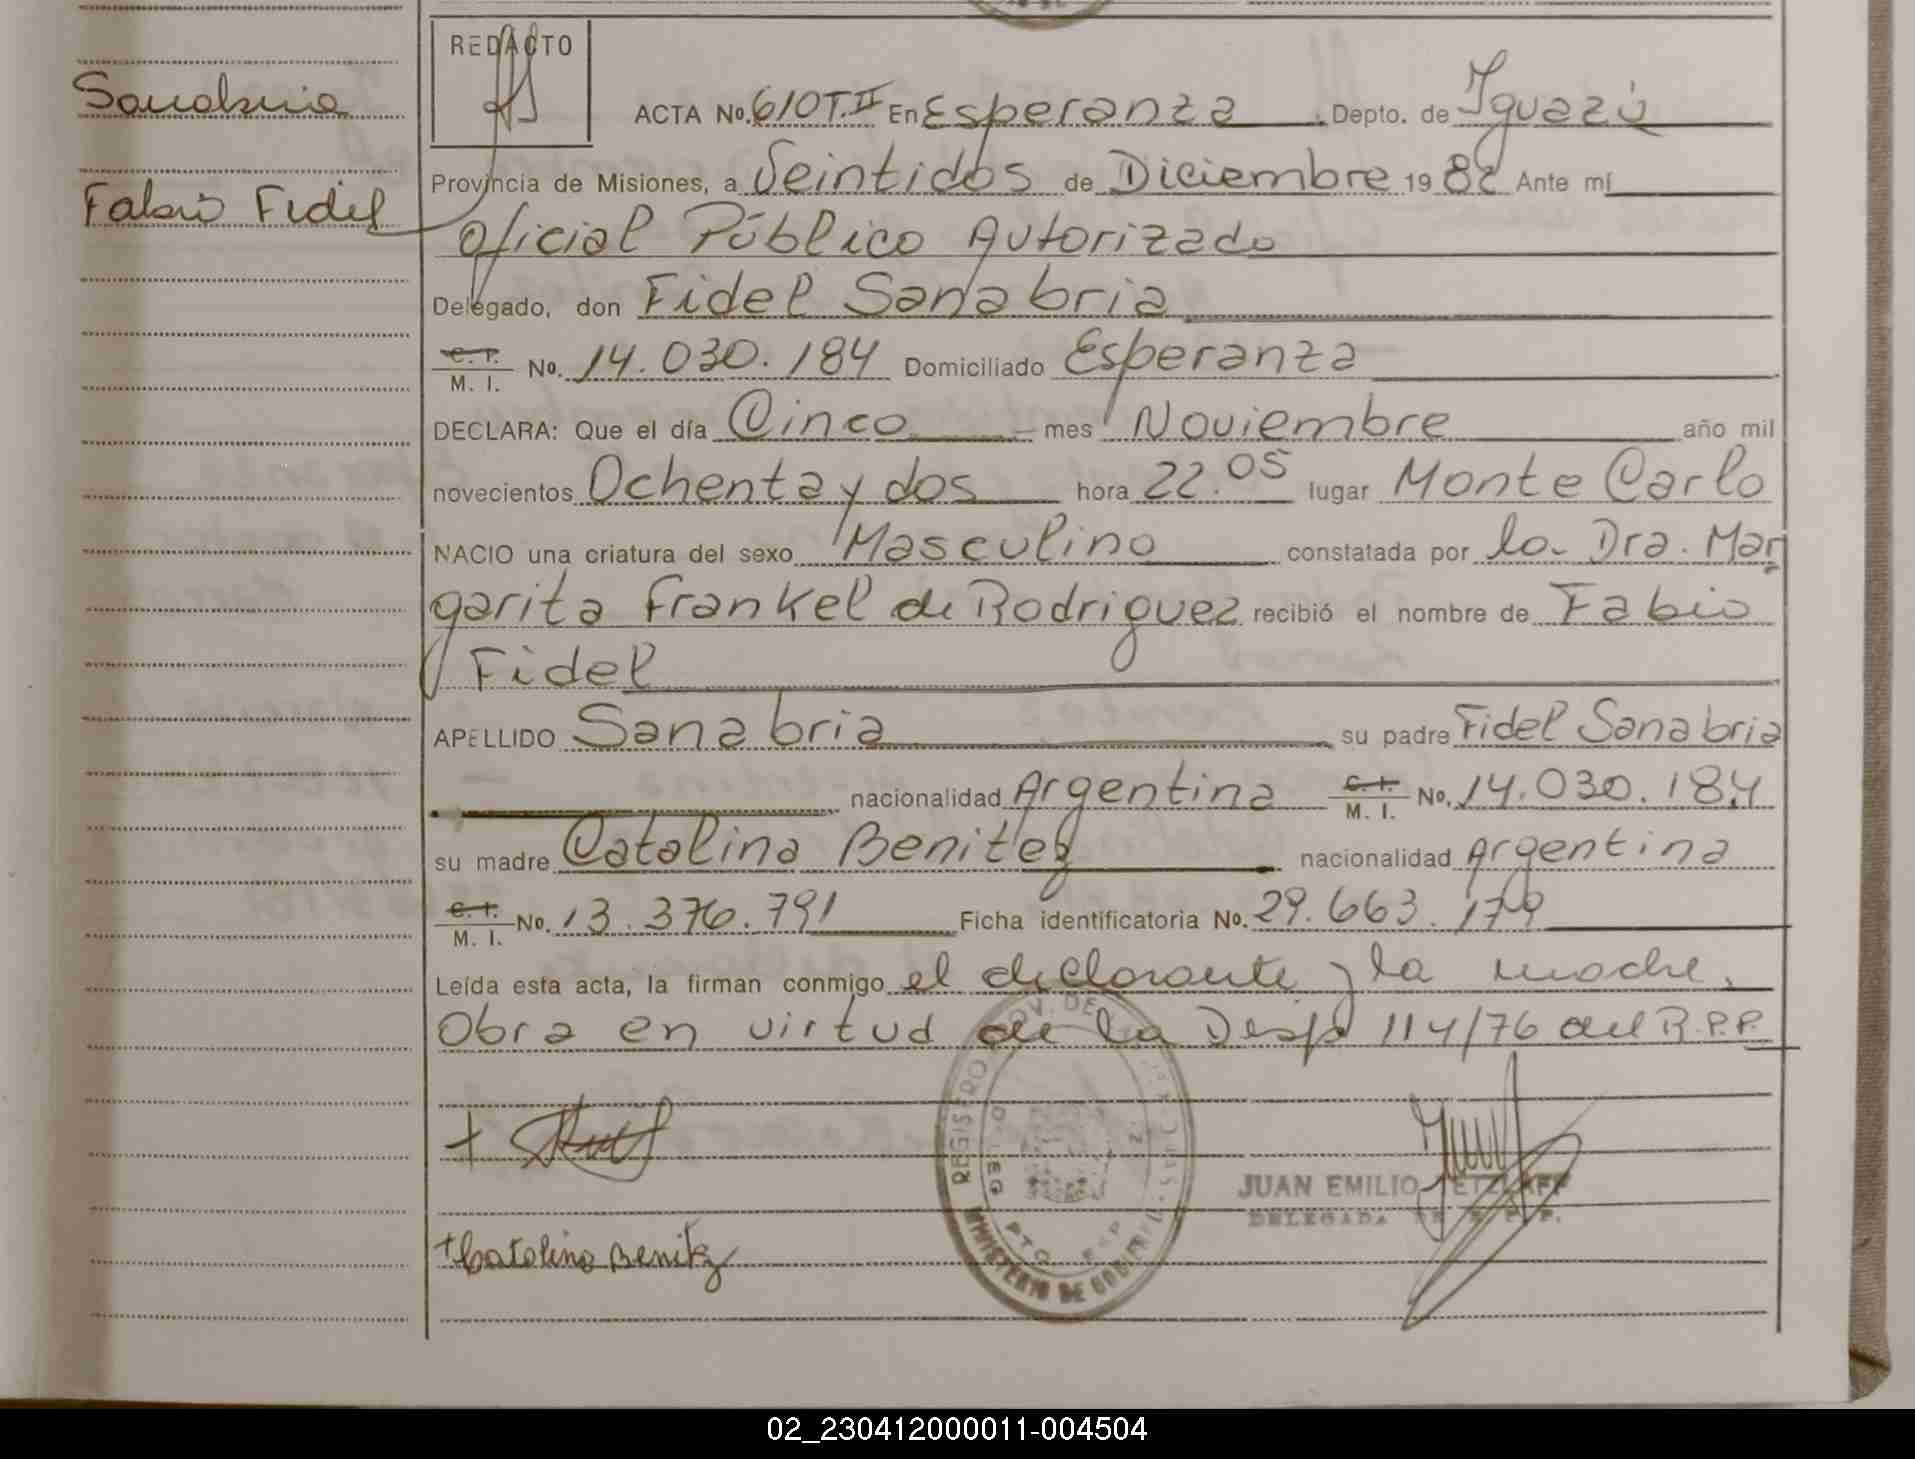 Sanabria
Fabio Fidel
REDACTO
ACTA No. 610 T.II En Esperanza . Depto. de Iguazú
Provincia de Misiones, a Veintidos de Diciembre 1982 Ante mí
Oficial Público Autorizado
Delegado, don Fidel Sanabria
C. I. M. I. No. 14.030.184 Domiciliado Esperanza
DECLARA: Que el día Cinco mes Noviembre año mil
novecientos Ochenta y dos hora 22.05 lugar Monte Carlo
NACIO una criatura del sexo Masculino constatada por la Dra. Mar
garita Frankel de Rodriguez recibió el nombre de Fabio
Fidel
APELLIDO Sanabria su padre Fidel Sanabria
nacionalidad Argentina C. I. M. I. No. 14.030.184
su madre Catalina Benitez nacionalidad Argentina
C. I. M. I. No. 13.376.791 Ficha identificatoria No. 29.663.179
Leída esta acta, la firman conmigo el declarante y la madre.
Obra en virtud de la Disp 114/76 del R.P.P.
REGISTRO PROV. DE
MINISTERIO DE GOBIERNO
JUAN EMILIO
DELEGADA
Catalina Benitez
02_230412000011-004504